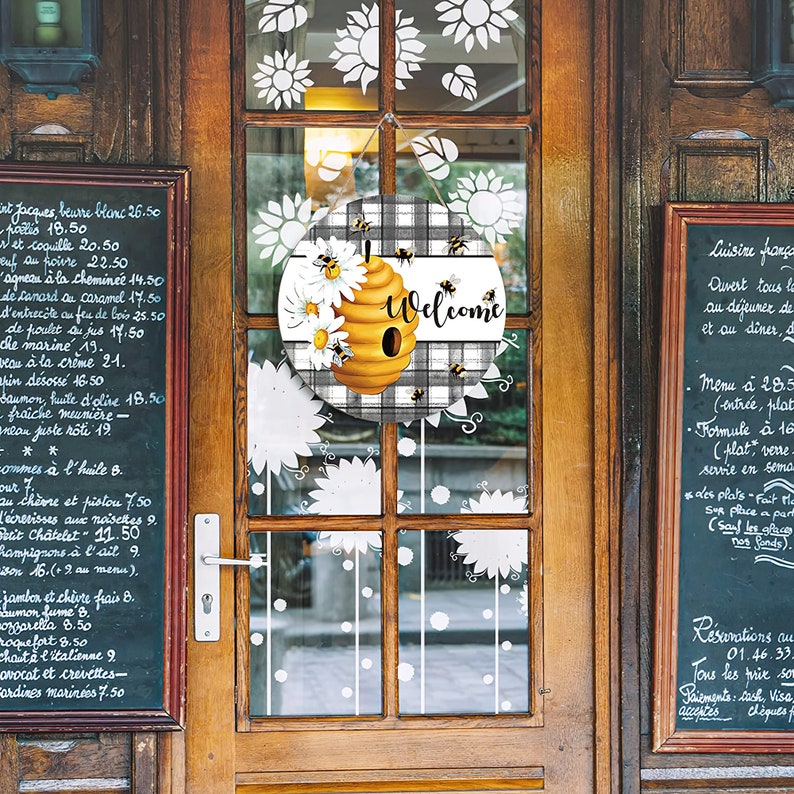 Jacques, beurre blanc 26.50
poëlés 18.50
et coquille 20.50
au poivre 22.50
d'agneau à la cheminée 14.50
de canard au caramel 17.50
d'entrecôte au feu de bois 25.50
de poulet au jus 17.50
mariné 19.
veau à la crème 21.
désossé 16.50
saumon, huile d'olive 18.50
fraîche meunière
agneau juste rôti 19.
* *
pommes à l'huile 8.
7.
au chèvre et pistou 7.50
d'écrevisses aux noisettes 9.
Châtelet — 11.50
champignons à l'ail 9.
16. (+9 au menu).
jambon et chèvre frais 8.
saumon fumé 8.
mozzarella 8.50
roquefort 8.50
chaut à l'italienne 9.
avocat et crevettes-
sardines marinées 7.50
Welcome
Cuisine
Ouvert
au déjeuner de
et au dîner,
- Menu à 28.5
(entrée, plat
- Formule à 16
(plat, verre
servie en sema
* Les plats "Fait
sur place a
(sauf les glaces
nos fonds).
Réservations au
01.46.33
Tous les prix son
Paiements: cash, Visa,
acceptés chèques